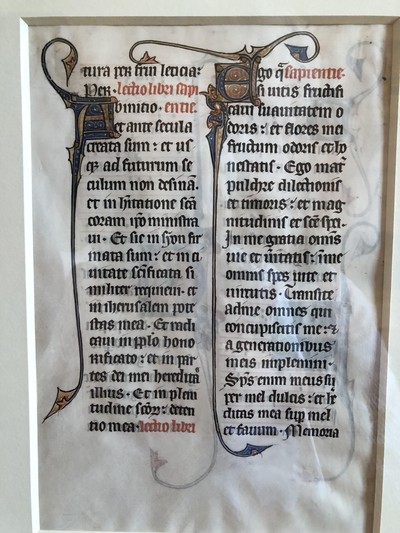 tura per frm leticia:
Per · lectio libri sapi
Ab initio · entie.
et ante secula
creata sum : et us
qꝫ ad futurum se
culum non desinā.
et in hitatione scā
coram ipo ministra
ui · Et sic in syon fir
mata sum : et in ci
uitate scificata si
militer requieui · et
in iherusalem pote
stas mea · Et radi
caui in pplo hono
rificato : et in par
tes dei mei heredita
illius · Et in pleni
tudine scōꝝ : deten
tio mea · lectio libri
Ego q̄ sapientie.
si uitis fructifi
caui suauitatem o
doris : et flores mei
fructus odoris et ho
nestatis · Ego mat̄
pulchre dilectionis
et timoris : et mag
nitudinis et sc̄e spei ·
In me gratia omīs
uie et uītatis : ī me
omnis spes uite et
uirtutis · Transite
ad me omnes qui
concupiscitis me : ⁊
a generationibus
meis implemini ·
Sp̄s enim meus su
per mel dulcis : et he
ditas mea sup mel
et fauum · Memoria